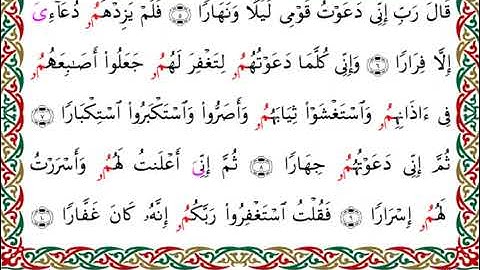 قَالَ رَبِّ إِنِّي دَعَوْتُ قَوْمِي لَيْلًا وَنَهَارًا ۝٥ فَلَمْ يَزِدْهُمُۥ دُعَآءِيَ
إِلَّا فِرَارًا ۝٦ وَإِنِّي كُلَّمَا دَعَوْتُهُمُۥ لِتَغْفِرَ لَهُمُۥ جَعَلُوٓا۟ أَصَٰبِعَهُمُۥ
فِيٓ ءَاذَانِهِمُۥ وَٱسْتَغْشَوْا۟ ثِيَابَهُمُۥ وَأَصَرُّوا۟ وَٱسْتَكْبَرُوا۟ ٱسْتِكْبَارًا ۝٧
ثُمَّ إِنِّي دَعَوْتُهُمُۥ جِهَارًا ۝٨ ثُمَّ إِنِّيَ أَعْلَنتُ لَهُمُۥ وَأَسْرَرْتُ
لَهُمُۥ إِسْرَارًا ۝٩ فَقُلْتُ ٱسْتَغْفِرُوا۟ رَبَّكُمُۥ إِنَّهُۥ كَانَ غَفَّارًا ۝١٠